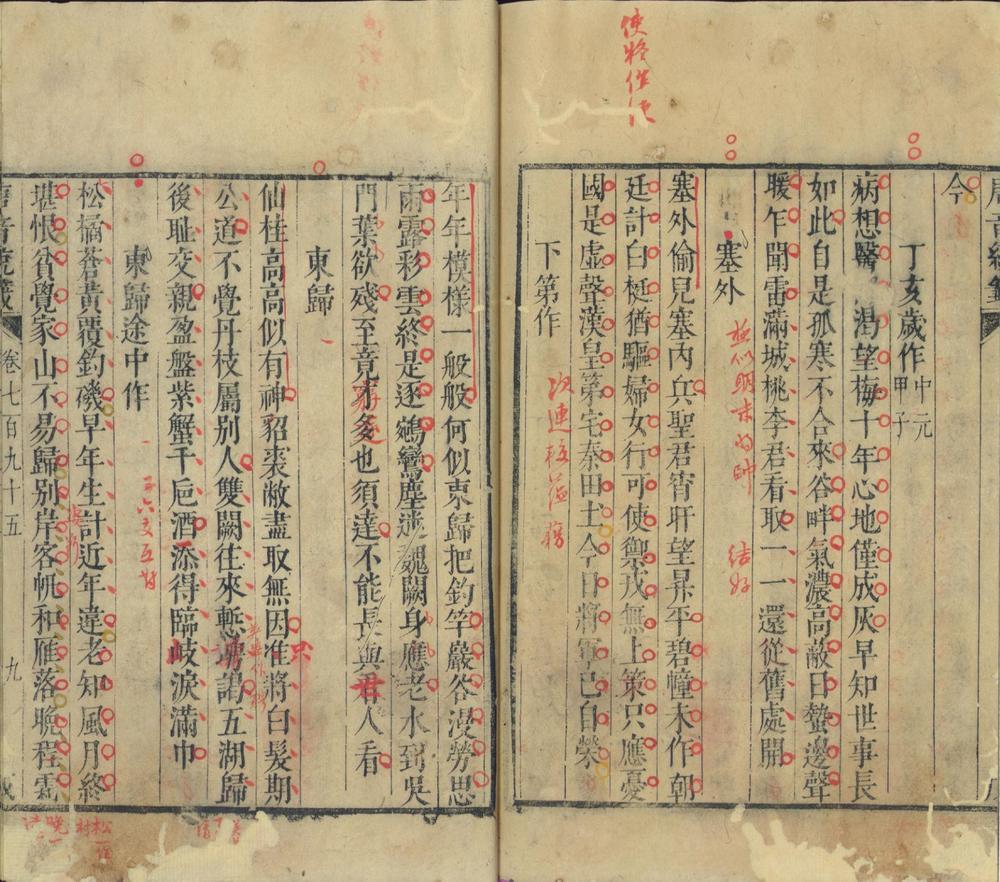 今
丁亥歲作 中元甲子
病想醫 渴望梅十年心地僅成灰早知世事長
如此自是孤寒不合來谷畔氣濃高蔽日蟄邊聲
暖乍聞雷滿城桃李君看取一一還從舊處開
塞外
塞外偷兒塞內兵聖君宵旰望昇平碧幢未作朝
廷計白梃猶驅婦女行可使禦戎無上策只應憂
國是虛聲漢皇第宅秦田土今日將軍已自榮
下第作
年年模樣一般般何似東歸把釣竿巖谷漫勞思
雨露彩雲終是逐鵷鸞塵迷魏闕身應老水到吳
門葉欲殘至竟才多也須達不能長與君人看
東歸
仙桂高高似有神貂裘敝盡取無因准將白髮期
公道不覺丹枝屬別人雙闕往來慙請謁五湖歸
後恥交親盈盤紫蟹千卮酒添得臨岐淚滿巾
東歸途中作
松橘蒼黃覆釣磯早年生計近年違老知風月終
堪恨貧覺家山不易歸別岸客帆和雁落晚程霜
卷七百九十五
九
結好